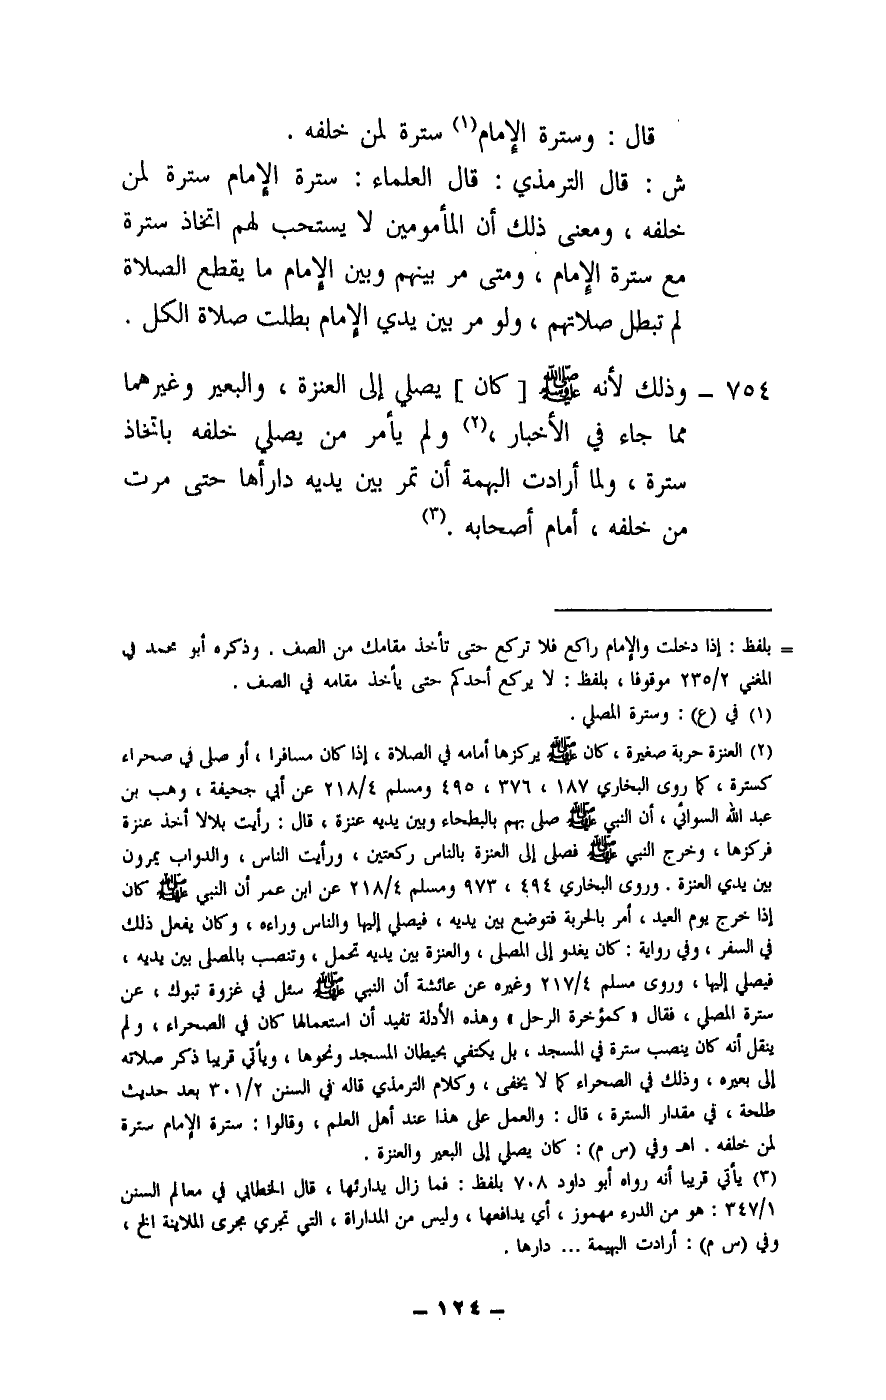 قال : وسترة الإمام(١) سترة لمن خلفه .
ش : قال الترمذي : قال العلماء : سترة الإمام سترة لمن
خلفه ، ومعنى ذلك أن المأمومين لا يستحب لهم اتخاذ سترة
مع سترة الإمام ، ومتى مر بينهم وبين الإمام ما يقطع الصلاة
لم تبطل صلاتهم ، ولو مر بين يدي الإمام بطلت صلاة الكل .
٧٥٤ – وذلك لأنه ﷺ [ كان ] يصلي إلى العنزة ، والبعير وغيرهما
مما جاء في الأخبار ،(٢) ولم يأمر من يصلي خلفه باتخاذ
سترة ، ولما أرادت البهمة أن تمر بين يديه دارأها حتى مرت
من خلفه ، أمام أصحابه .(٣)
= بلفظ : إذا دخلت والإمام راكع فلا تركع حتى تأخذ مقامك من الصف . وذكره أبو محمد في
المغني ٢٣٥/٢ موقوفا ، بلفظ : لا يركع أحدكم حتى يأخذ مقامه في الصف .
(١) في (ع) : وسترة المصلي .
(٢) العنزة حربة صغيرة ، كان ﷺ يركزها أمامه في الصلاة ، إذا كان مسافرا ، أو صلى في صحراء
كسترة ، كما روى البخاري ١٨٧ ، ٣٧٦ ، ٤٩٥ ومسلم ٢١٨/٤ عن أبي جحيفة ، وهب بن
عبد الله السوائي ، أن النبي ﷺ صلى بهم بالبطحاء وبين يديه عنزة ، قال : رأيت بلالا أخذ عنزة
فركزها ، وخرج النبي ﷺ فصلى إلى العنزة بالناس ركعتين ، ورأيت الناس ، والدواب يمرون
بين يدي العنزة . وروى البخاري ٤٩٤ ، ٩٧٣ ومسلم ٢١٨/٤ عن ابن عمر أن النبي ﷺ كان
إذا خرج يوم العيد ، أمر بالحربة فتوضع بين يديه ، فيصلي إليها والناس وراءه ، وكان يفعل ذلك
في السفر ، وفي رواية : كان يغدو إلى المصلى ، والعنزة بين يديه تحمل ، وتنصب بالمصلى بين يديه ،
فيصلي إليها ، وروى مسلم ٢١٧/٤ وغيره عن عائشة أن النبي ﷺ سئل في غزوة تبوك ، عن
سترة المصلي ، فقال « كمؤخرة الرحل » وهذه الأدلة تفيد أن استعمالها كان في الصحراء ، ولم
ينقل أنه كان ينصب سترة في المسجد ، بل يكتفي بحيطان المسجد ونحوها ، ويأتي قريبا ذكر صلاته
إلى بعيره ، وذلك في الصحراء كما لا يخفى ، وكلام الترمذي قاله في السنن ٣٠١/٢ بعد حديث
طلحة ، في مقدار السترة ، قال : والعمل على هذا عند أهل العلم ، وقالوا : سترة الإمام سترة
لمن خلفه . اهـ وفي (س م) : كان يصلي إلى البعير والعنزة .
(٣) يأتي قريبا أنه رواه أبو داود ٧٠٨ بلفظ : فما زال يدارئها ، قال الخطابي في معالم السنن
٣٤٧/١ : هو من الدرء مهموز ، أي يدافعها ، وليس من المداراة ، التي تجري مجرى الملاينة الخ ،
وفي (س م) : أرادت البهيمة ... دارها .
– ١٢٤ –